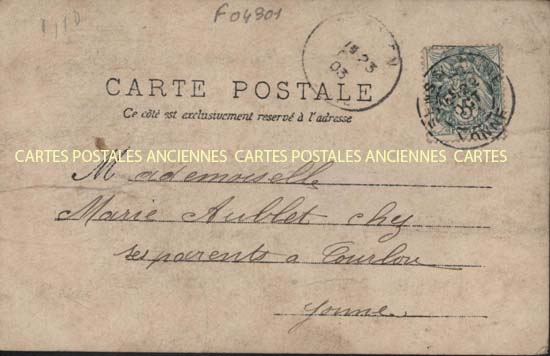 F04301
CARTE POSTALE
Ce côté est exclusivement réservé à l'adresse
CARTES POSTALES ANCIENNES CARTES POSTALES ANCIENNES CARTES
Mademoiselle
Marie Aublet chy
ses parents a Tourlou
Yonne
YONNE
03